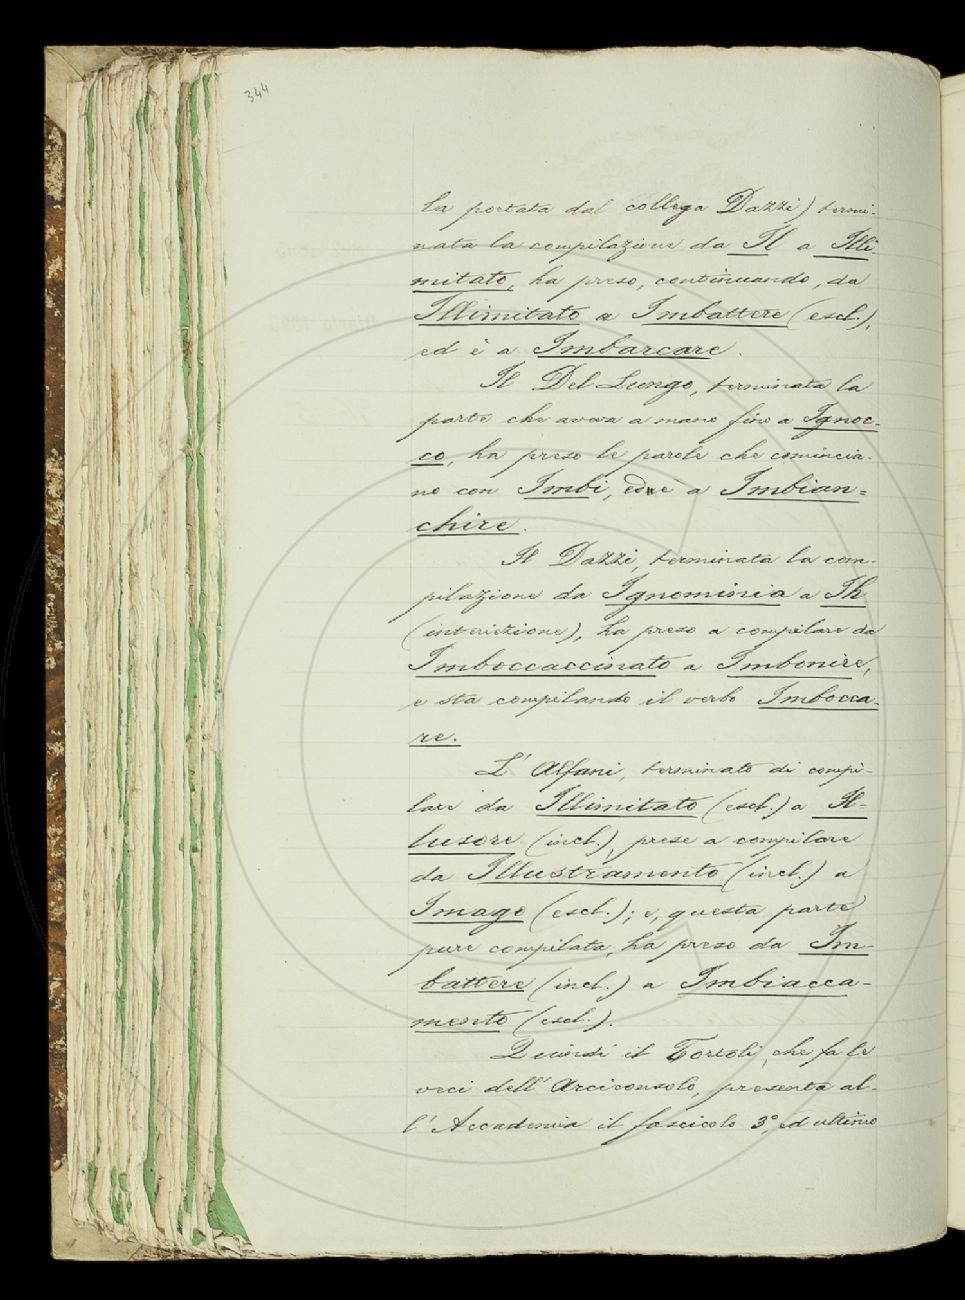 344
la portata dal collega Dazzi) termi-
nata la compilazione da Il a Illi-
mitato, ha preso, continuando, da
Illimitato a Imbattere (escl.),
ed è a Imbarcare.
Il Del Lungo, terminata la
parte che aveva a mano fino a Ignoc-
co, ha preso le parole che comincia-
no con Imbi, ed è a Imbian=
chire.
Il Dazzi, terminata la com-
pilazione da Ignominia a Ih
(interiezione), ha preso a compilare da
Imboccaccinato a Imbonire,
e sta compilando il verbo Imbocca-
re.
L'Alfani, terminato di compi-
lare da Illimitato (escl.) a Il=
lusore (incl.), prese a compilare
da Illustramento (incl.) a
Imago (escl.); e, questa parte
pure compilata, ha preso da Im-
battere (incl.) a Imbiacca-
mento (escl.).
Quindi il Tortoli, che fa le
veci dell'Arciconsolo, presenta al-
l'Accademia il fascicolo 3°, ed ultimo